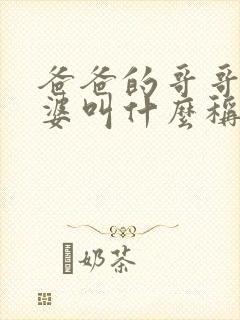 爸爸的哥哥
婆叫什麼稱
奶茶